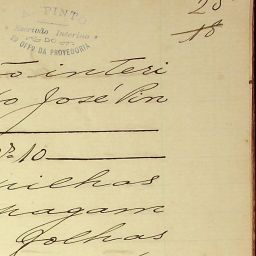 25
18
PINTO
Escrivão Interino
DO
OFFº DA PROVEDORIA
ão interi
o José Pin
nº 10
milhas
pagam
folhas